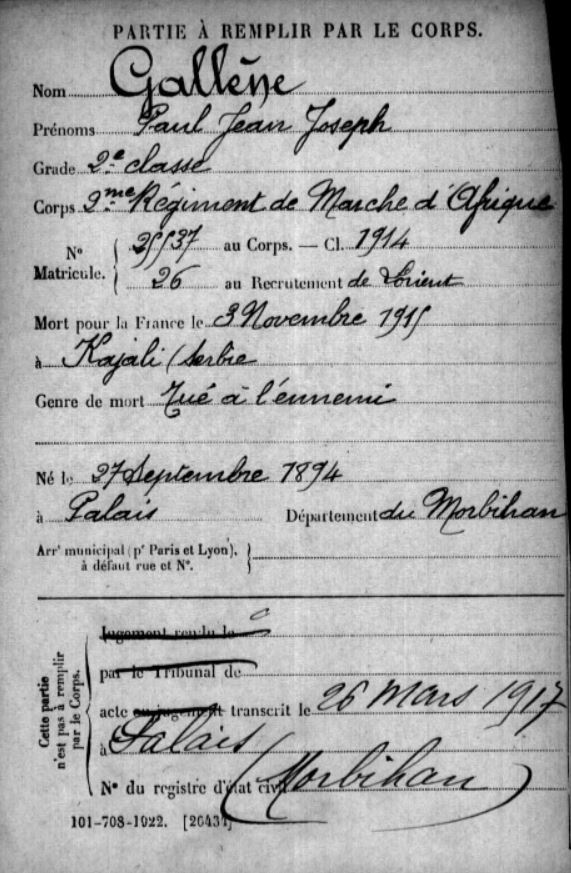 PARTIE À REMPLIR PAR LE CORPS.
Nom Gallène
Prénoms Paul Jean Joseph
Grade 2e classe
Corps 2me Régiment de Marche d'Afrique
No Matricule. { 2537 au Corps. — Cl. 1914
26 au Recrutement de Lorient
Mort pour la France le 3 Novembre 1915
à Kajali (Serbie
Genre de mort Tué à l'ennemi
Né le 27 Septembre 1894
à Palais Département du Morbihan
Arrt municipal (pr Paris et Lyon), }
à défaut rue et No.
Cette partie n'est pas à remplir par le Corps.
Jugement rendu le
par le Tribunal de
acte ou jugement transcrit le 26 Mars 1917
à Palais
No du registre d'état civil (Morbihan)
101-708-1922. [26434]